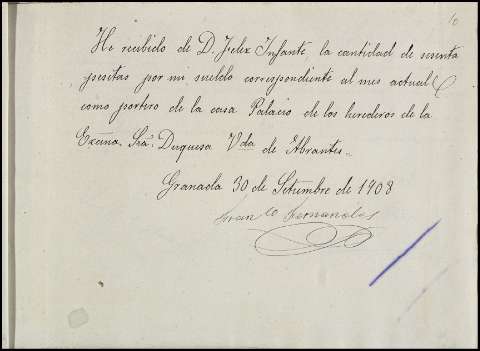 10
He recibido de D. Felix Infante, la cantidad de sesenta
pesetas por mi sueldo correspondiente al mes actual
como portero de la casa Palacio de los herederos de la
Excma. Sra. Duquesa Vda de Abrantes.
Granada 30 de Setiembre de 1908
Franco Fernandes